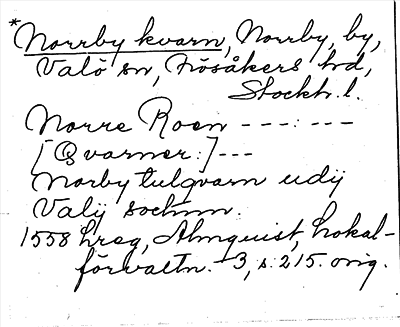 *Norrby kvarn, Norrby, by,
Valö sn, Frösåkers hd,
Stockh. l.
Norre Roen ---:---
[Qvarner:]---
Norby tulqvarn udij
Valij sochnn.
1558 hreg, Almquist, Lokal-
förvaltn. 3, s. 215. orig.